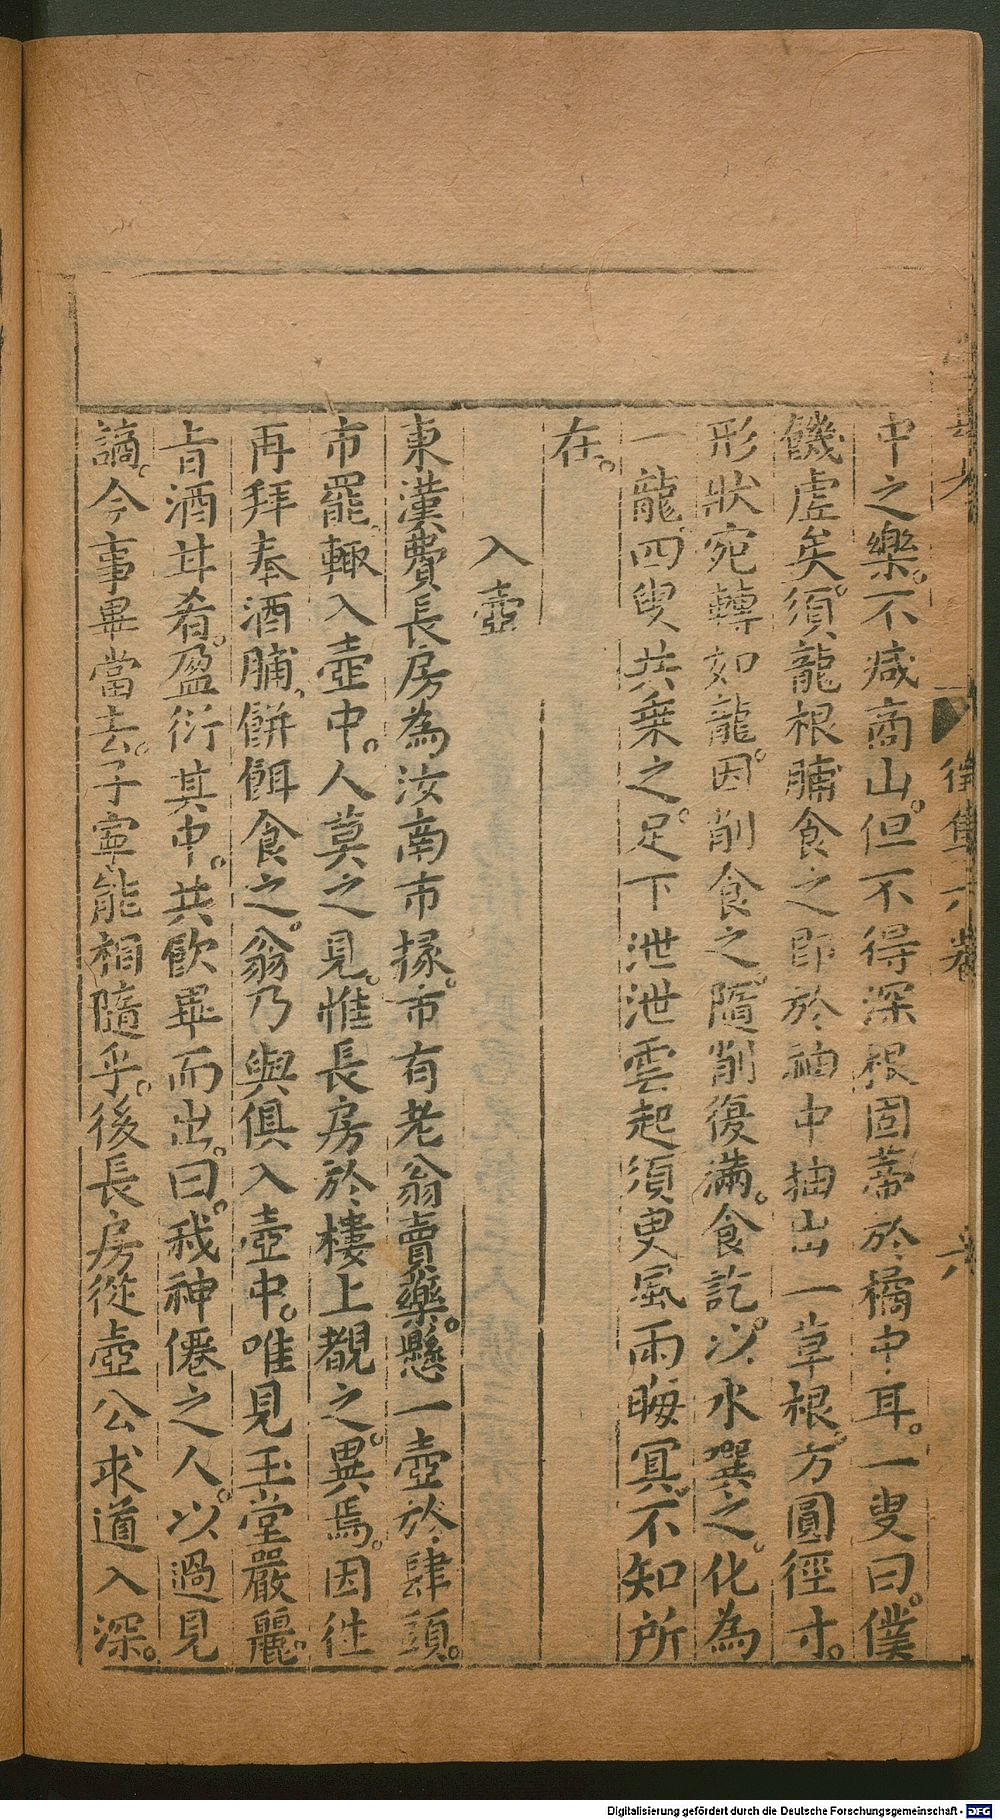 中之樂。不減商山。但不得深根固蒂於橘中耳。一叟曰。僕
饑虛矣。須龍根脯食之。即於袖中抽出一草根。方圓徑寸。
形狀宛轉如龍。因削食之。隨削復滿。食訖。以水噀之。化為
一龍。四叟共乗之。足下泄泄雲起。須臾風雨晦冥。不知所
在。
入壺
東漢費長房為汝南市掾。市有老翁賣藥。懸一壺於肆頭。
市罷、輙入壺中。人莫之見。惟長房於樓上覩之。異焉。因徃
再拜奉酒脯。餅餌食之。翁乃與俱入壺中。唯見玉堂嚴麗。
旨酒甘肴。盈衍其中。共飲畢而出。曰。我神僊之人。以過見
謫。今事畢當去。子寧能相隨乎。後長房從壺公求道入深。
六
Digitalisierung gefördert durch die Deutsche Forschungsgemeinschaft - DFG